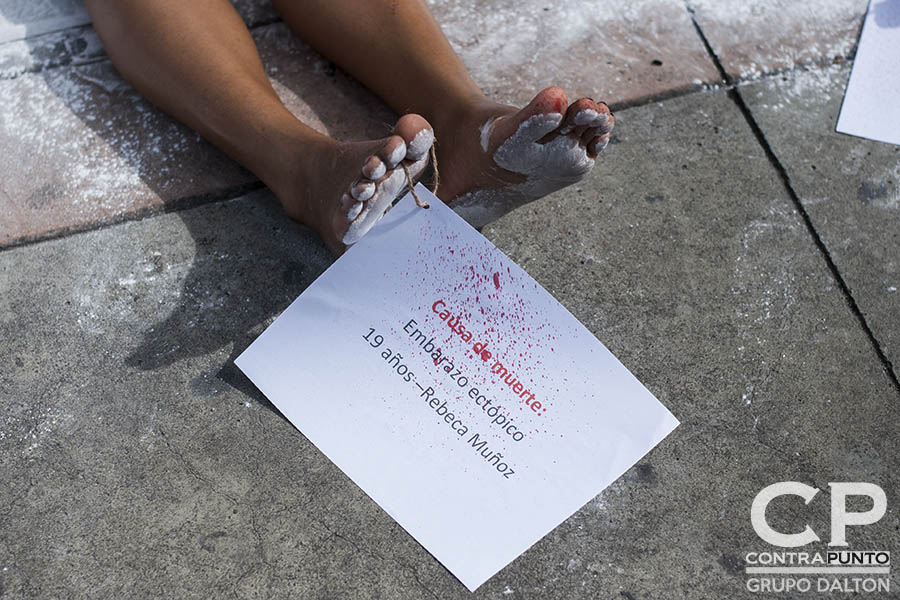 Causa de muerte:
Embarazo ectópico
19 años—Rebeca Muñoz
CP
CONTRAPUNTO
GRUPO DALTON